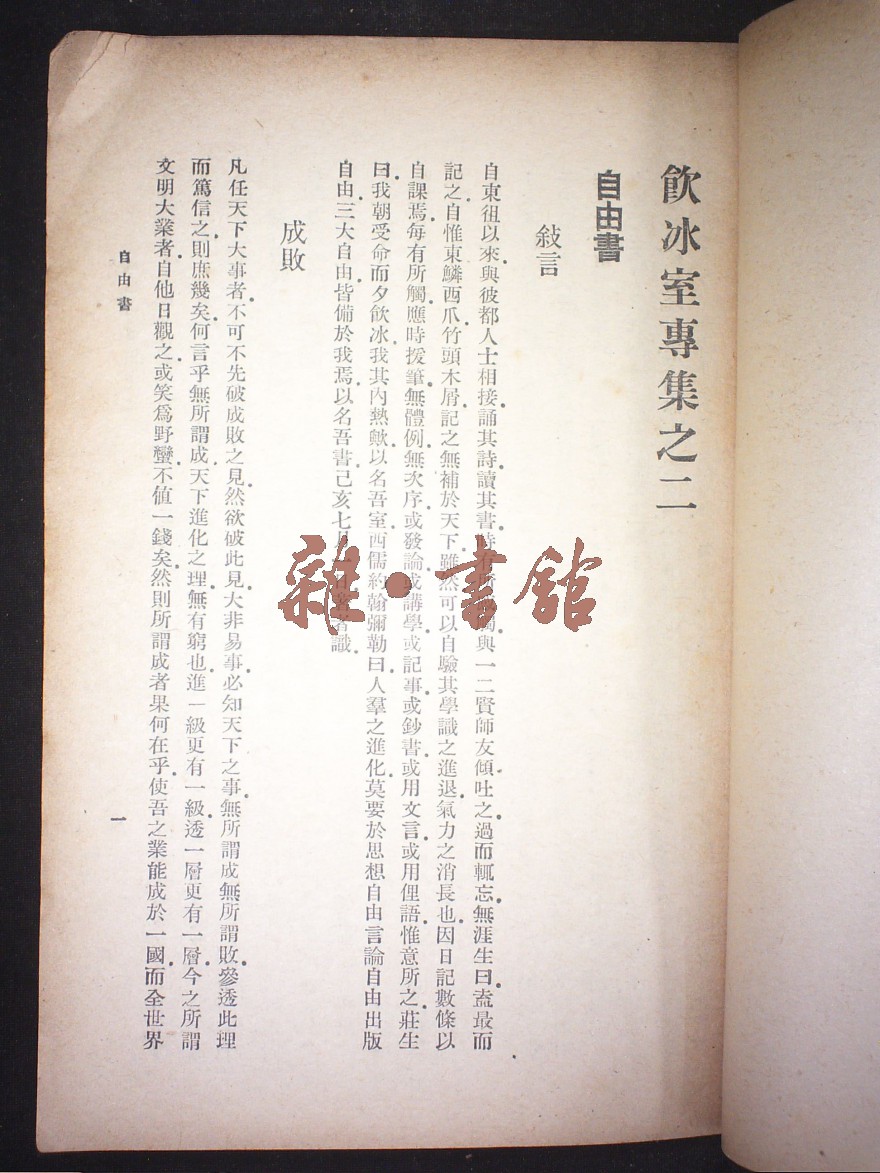 飲冰室專集之二
自由書
敍言
自東徂以來與彼都人士相接誦其詩讀其書時有所感觸與一二賢師友傾吐之過而輒忘無涯生曰盍最而
記之自惟東鱗西爪竹頭木屑記之無補於天下雖然可以自驗其學識之進退氣力之消長也因日記數條以
自課焉每有所觸應時援筆無體例無次序或發論或講學或記事或鈔書或用文言或用俚語惟意所之莊生
曰我朝受命而夕飲冰我其內熱歟以名吾室西儒約翰彌勒曰人羣之進化莫要於思想自由言論自由出版
自由三大自由皆備於我焉以名吾書己亥七月一日著者識
成敗
凡任天下大事者不可不先破成敗之見然欲破此見大非易事必知天下之事無所謂成無所謂敗參透此理
而篤信之則庶幾矣何言乎無所謂成天下進化之理無有窮也進一級更有一級透一層更有一層今之所謂
文明大業者自他日觀之或笑爲野蠻不值一錢矣然則所謂成者果何在乎使吾之業能成於一國而全世界
自由書
一
雜·書館